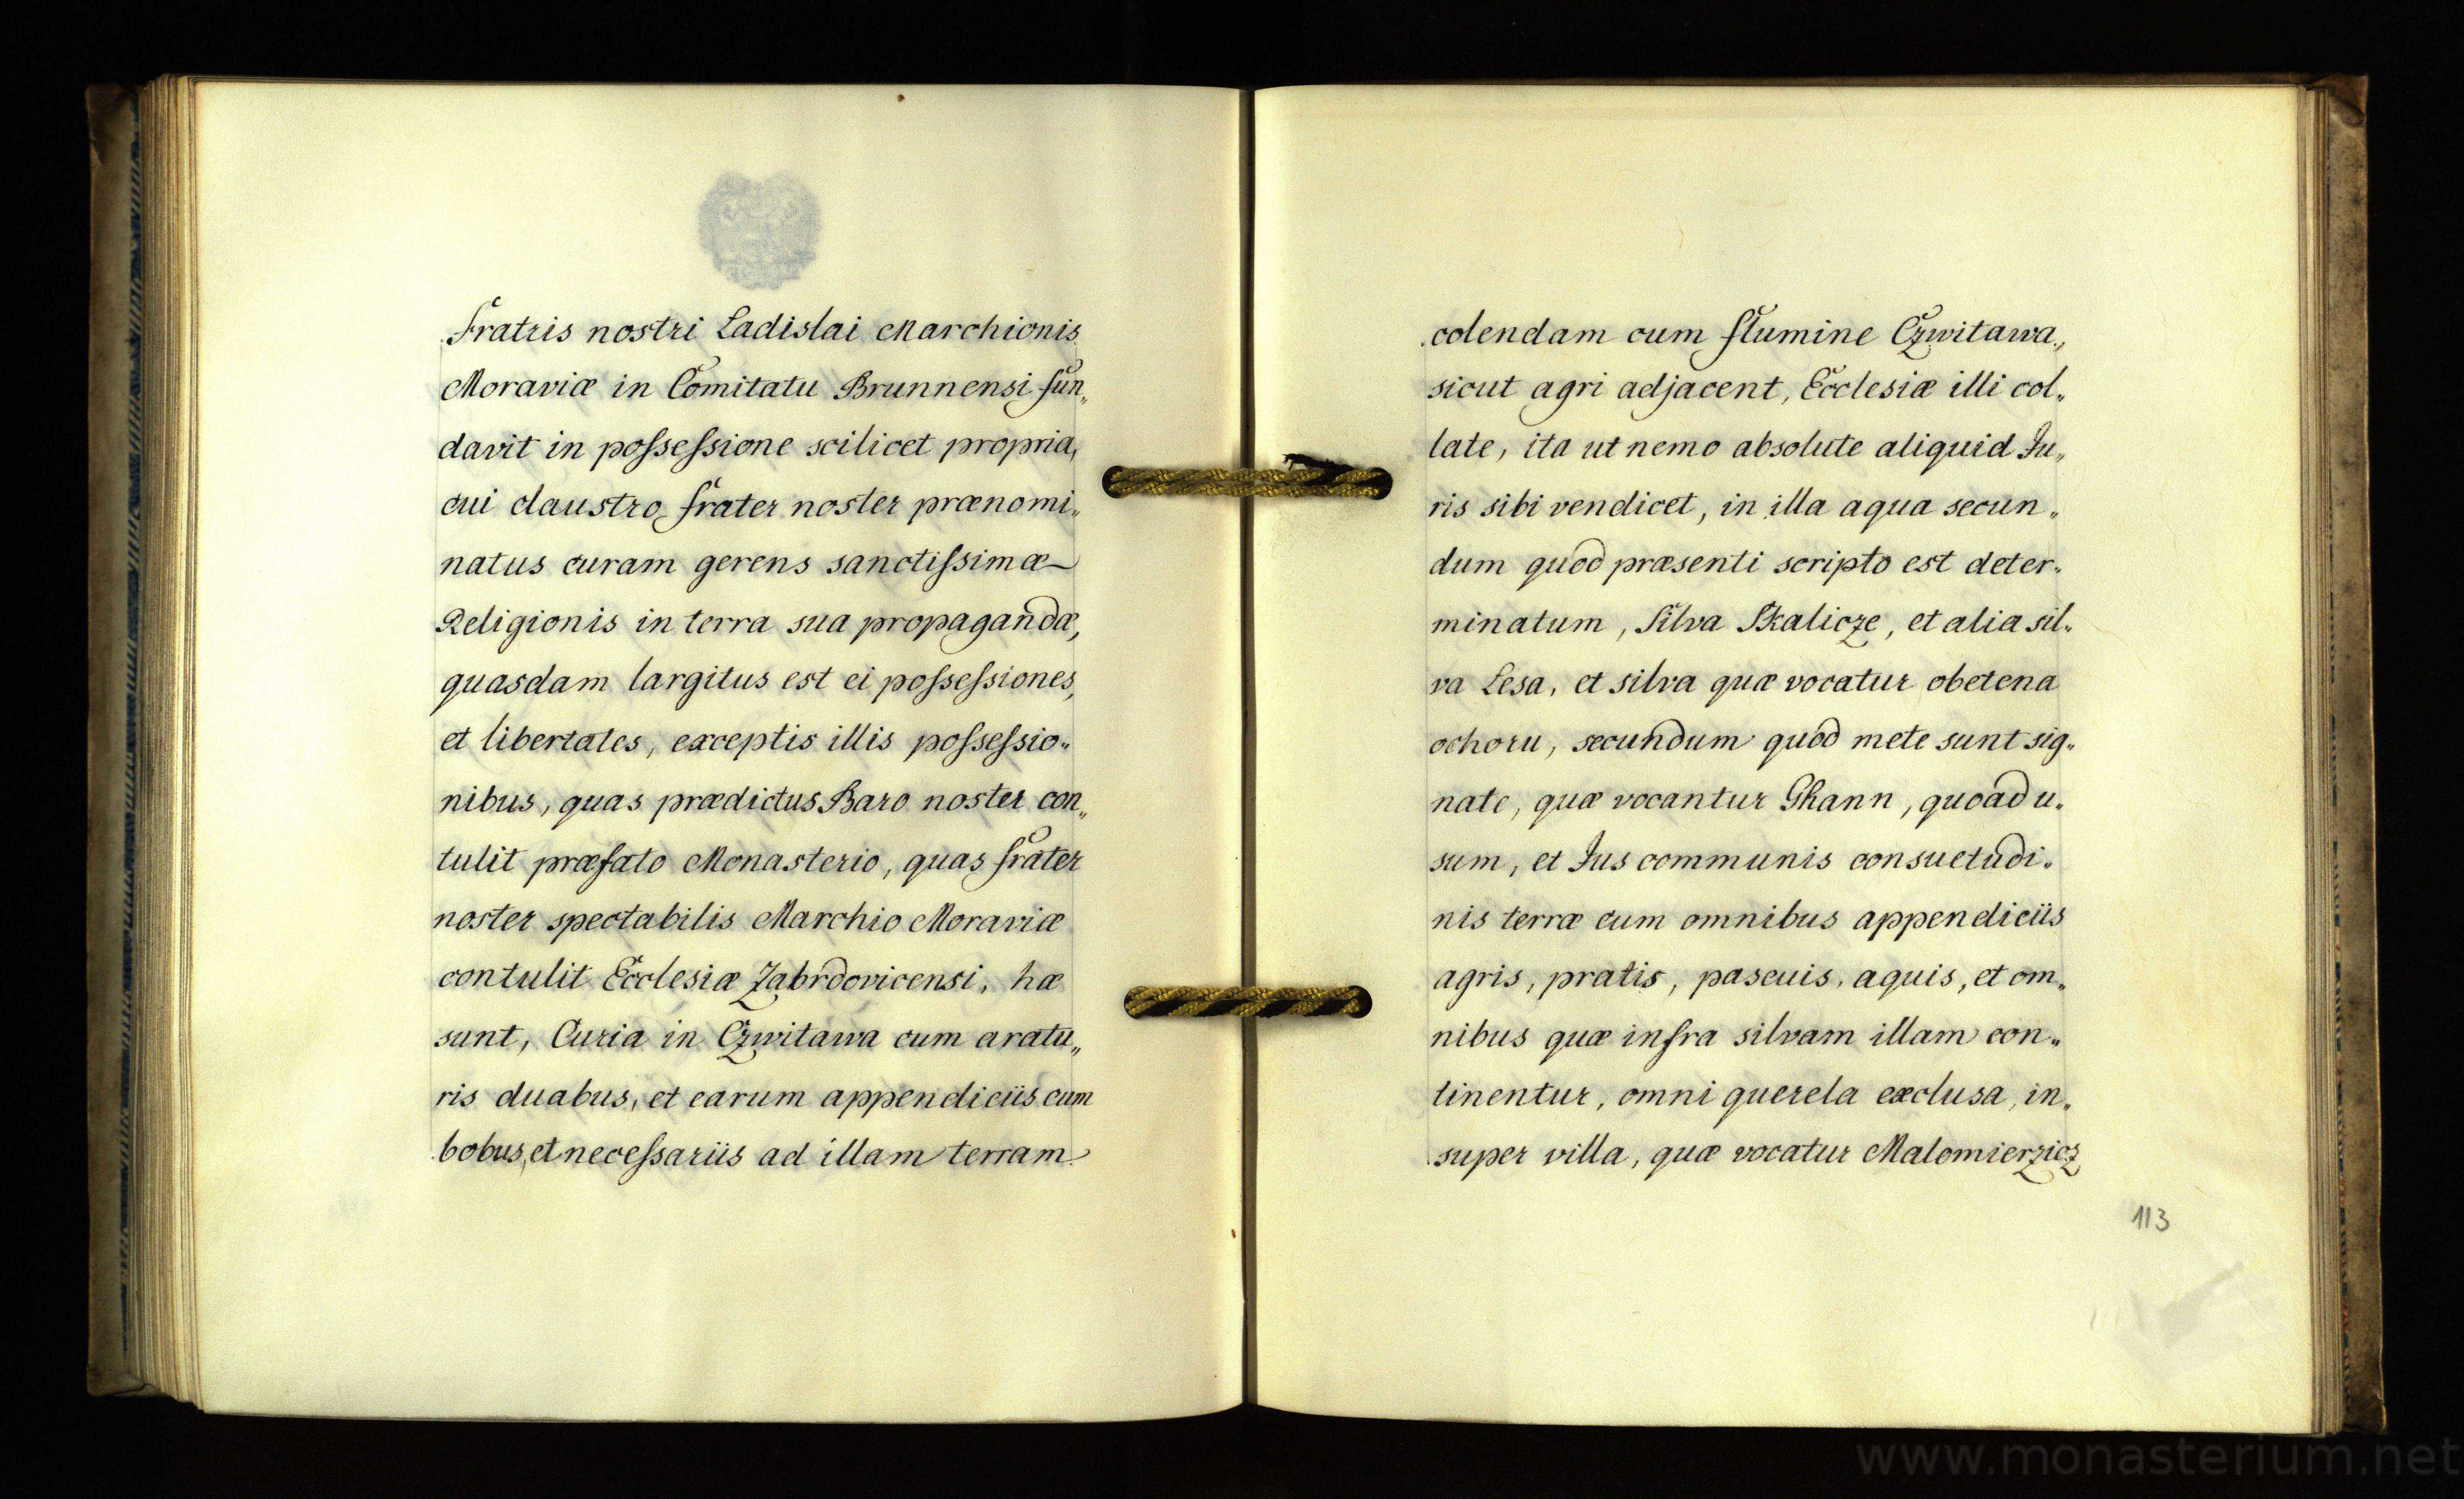 fratris nostri Ladislai Marchionis
Moraviæ in Comitatu Brunnensi fun„
davit in poſseſsione scilicet propria,
cui claustro frater noster prænomi„
natus curam gerens sanctiſsimæ
Religionis in terra sua propagandæ,
quasdam largitus est ei poſseſsiones,
et libertates, exceptis illis poſseſsio„
nibus, quas prædictus Baro noster con„
tulit præfato Monasterio, quas frater
noster spectabilis Marchio Moraviæ
contulit Ecclesiæ Zabrdovicensi, hæ
sunt, Curia in Czwitawa cum aratu„
ris duabus, et earum appendiciis cum
bobus, et neceſsariis ad illam terram
colendam cum flumine Czwitawa,
sicut agri adjacent, Ecclesiæ illi col„
late, ita ut nemo absolute aliquid Ju„
ris sibi vendicet, in illa aqua secun„
dum quod præsenti scripto est deter„
minatum, Silva Skalicze, et alia sil„
va Lesa, et silva quæ vocatur obetena
ochoru, secundum quod mete sunt sig„
nate, quæ vocantur Ghann, quoad u„
sum, et Jus communis consuetudi„
nis terræ cum omnibus appendiciis
agris, pratis, pascuis, aquis, et om„
nibus quæ infra silvam illam con„
tinentur, omni querela exclusa, in„
super villa, quæ vocatur Malomierzicz
113
www.monasterium.net